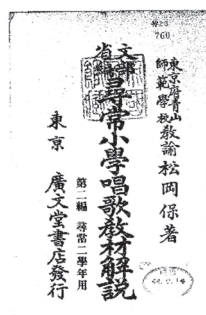 特23
760
東京府青山
師範學校教諭 松岡保著
文部
省編 尋常小學唱歌教材解説
第二編 尋常二學年用
東京 廣文堂書店發行